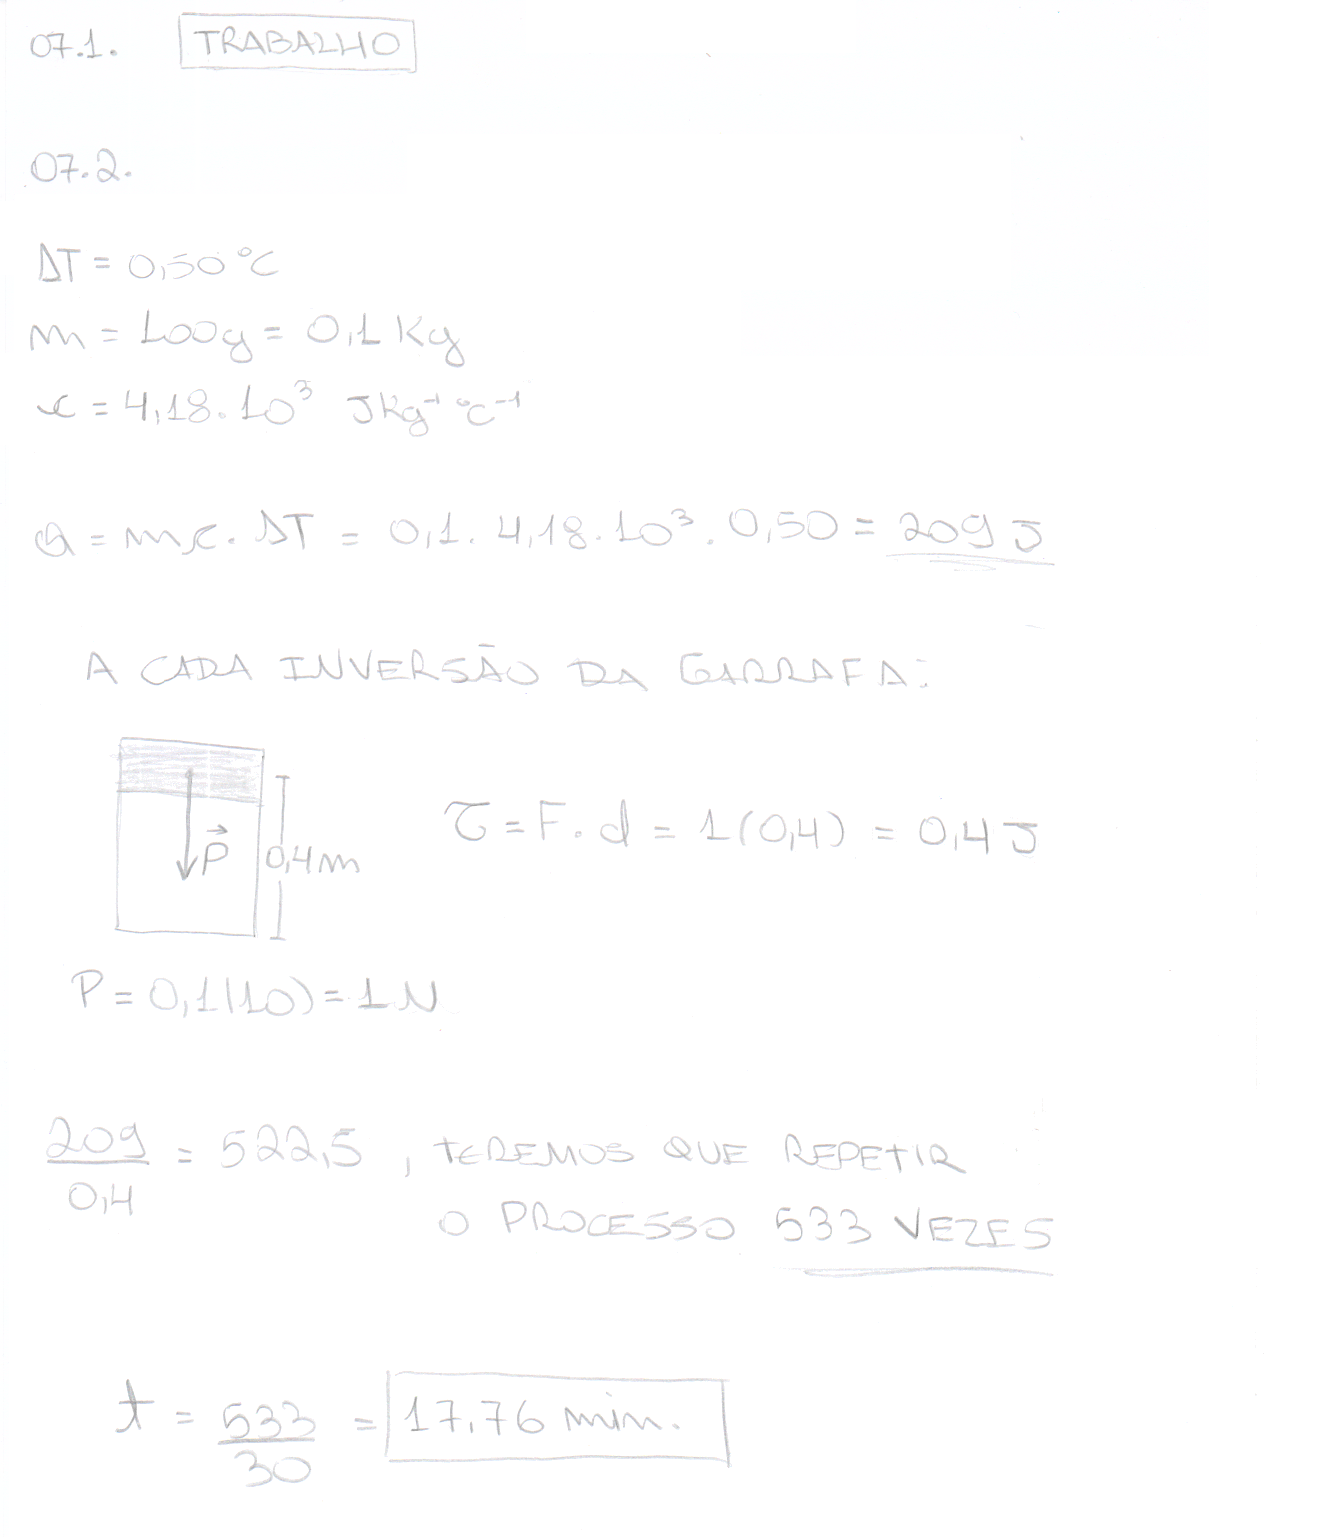 07.1. TRABALHO
07.2.
ΔT = 0,50 °C
m = 100g = 0,1 Kg
c = 4,18.10³ J Kg⁻¹ °C⁻¹
Q = m.c. ΔT = 0,1. 4,18. 10³. 0,50 = 209 J
A CADA INVERSÃO DA GARRAFA:
P⃗ 0,4m
τ = F. d = 1(0,4) = 0,4 J
P = 0,1(10) = 1 N
209/0,4 = 522,5 , TEREMOS QUE REPETIR
O PROCESSO 533 VEZES
t = 533/30 = 17,76 min.